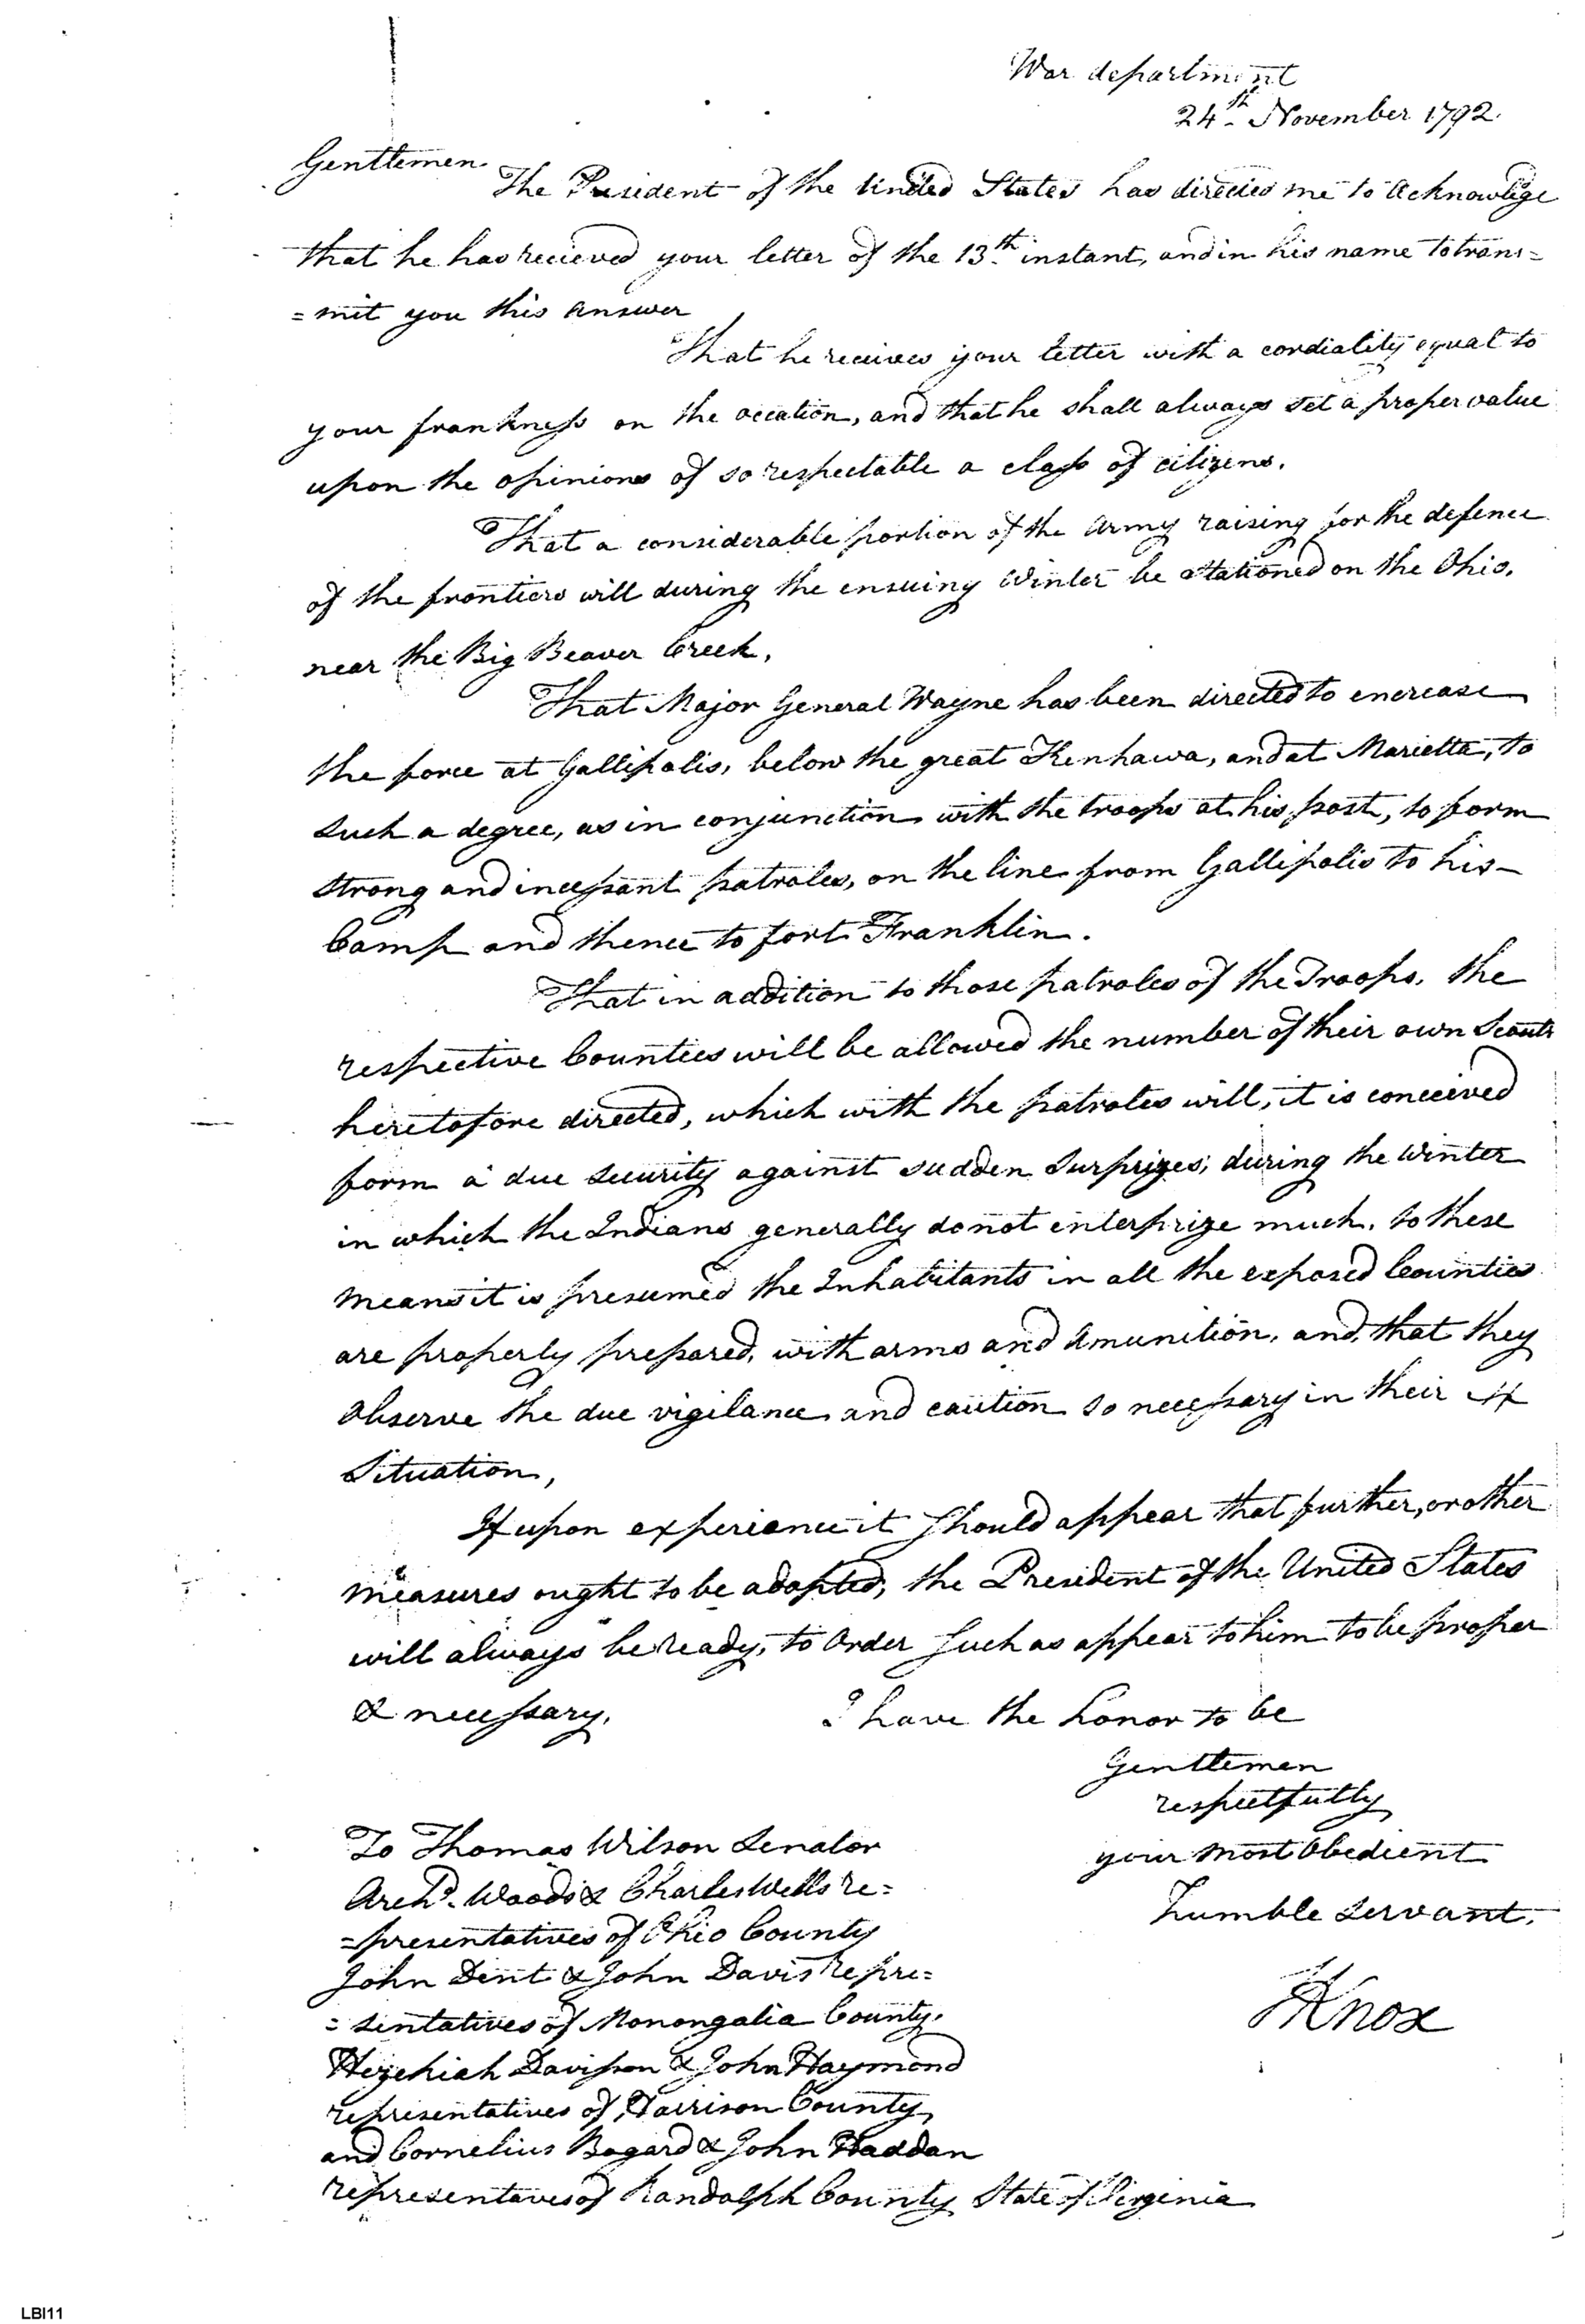 War department
24th November 1792.
Gentlemen
The President of the United States has directed me to acknowlege
that he has recieved your letter of the 13th instant, and in his name to trans=
=mit you this answer
That he receives your letter with a cordiality equal to
your frankness on the occation, and that he shall always set a proper value
upon the opinions of so respectable a class of citizens.
That a considerable portion of the Army raising for the defence
of the frontiers will during the ensuing Winter be stationed on the Ohio,
near the Big Beaver Creek,
That Major General Wayne has been directed to encrease
the force at Gallipolis, below the great Kenhawa, and at Marietta, to
such a degree, as in conjunction with the troops at his post, to form
strong and incessant patroles, on the line from Gallipolis to his
Camp and thence to fort Franklin.
That in addition to those patroles of the Troops, the
respective Counties will be allowed the number of their own Scouts
heretofore directed, which with the patroles will, it is conceived
form a due security against sudden surprizes, during the winter
in which the Indians generally do not enterprize much, to these
means it is presumed the Inhabitants in all the exposed Counties
are properly prepared, with arms and Amunition, and, that they
Observe the due vigilance and caution so necessary in their
Situation,
If upon experience it should appear that further, or other
measures ought to be adopted, the President of the United States
will always be ready, to Order such as appear to him to be proper
& necessary.
I have the honor to be
Gentlemen
respectfully
your most Obedient
humble servant,
HKnox
To Thomas Wilson Senator
Archd. Woods & Charles Wells re=
=presentatives of Ohio County
John Dent & John Davis repre=
=sentatives of Monongalia County,
Hezekiah Davisson & John Haymond
representatives of Harrison County
and Cornelius Bogard & John Haddan
representaves of Randolph County State of Virginia
LBI11